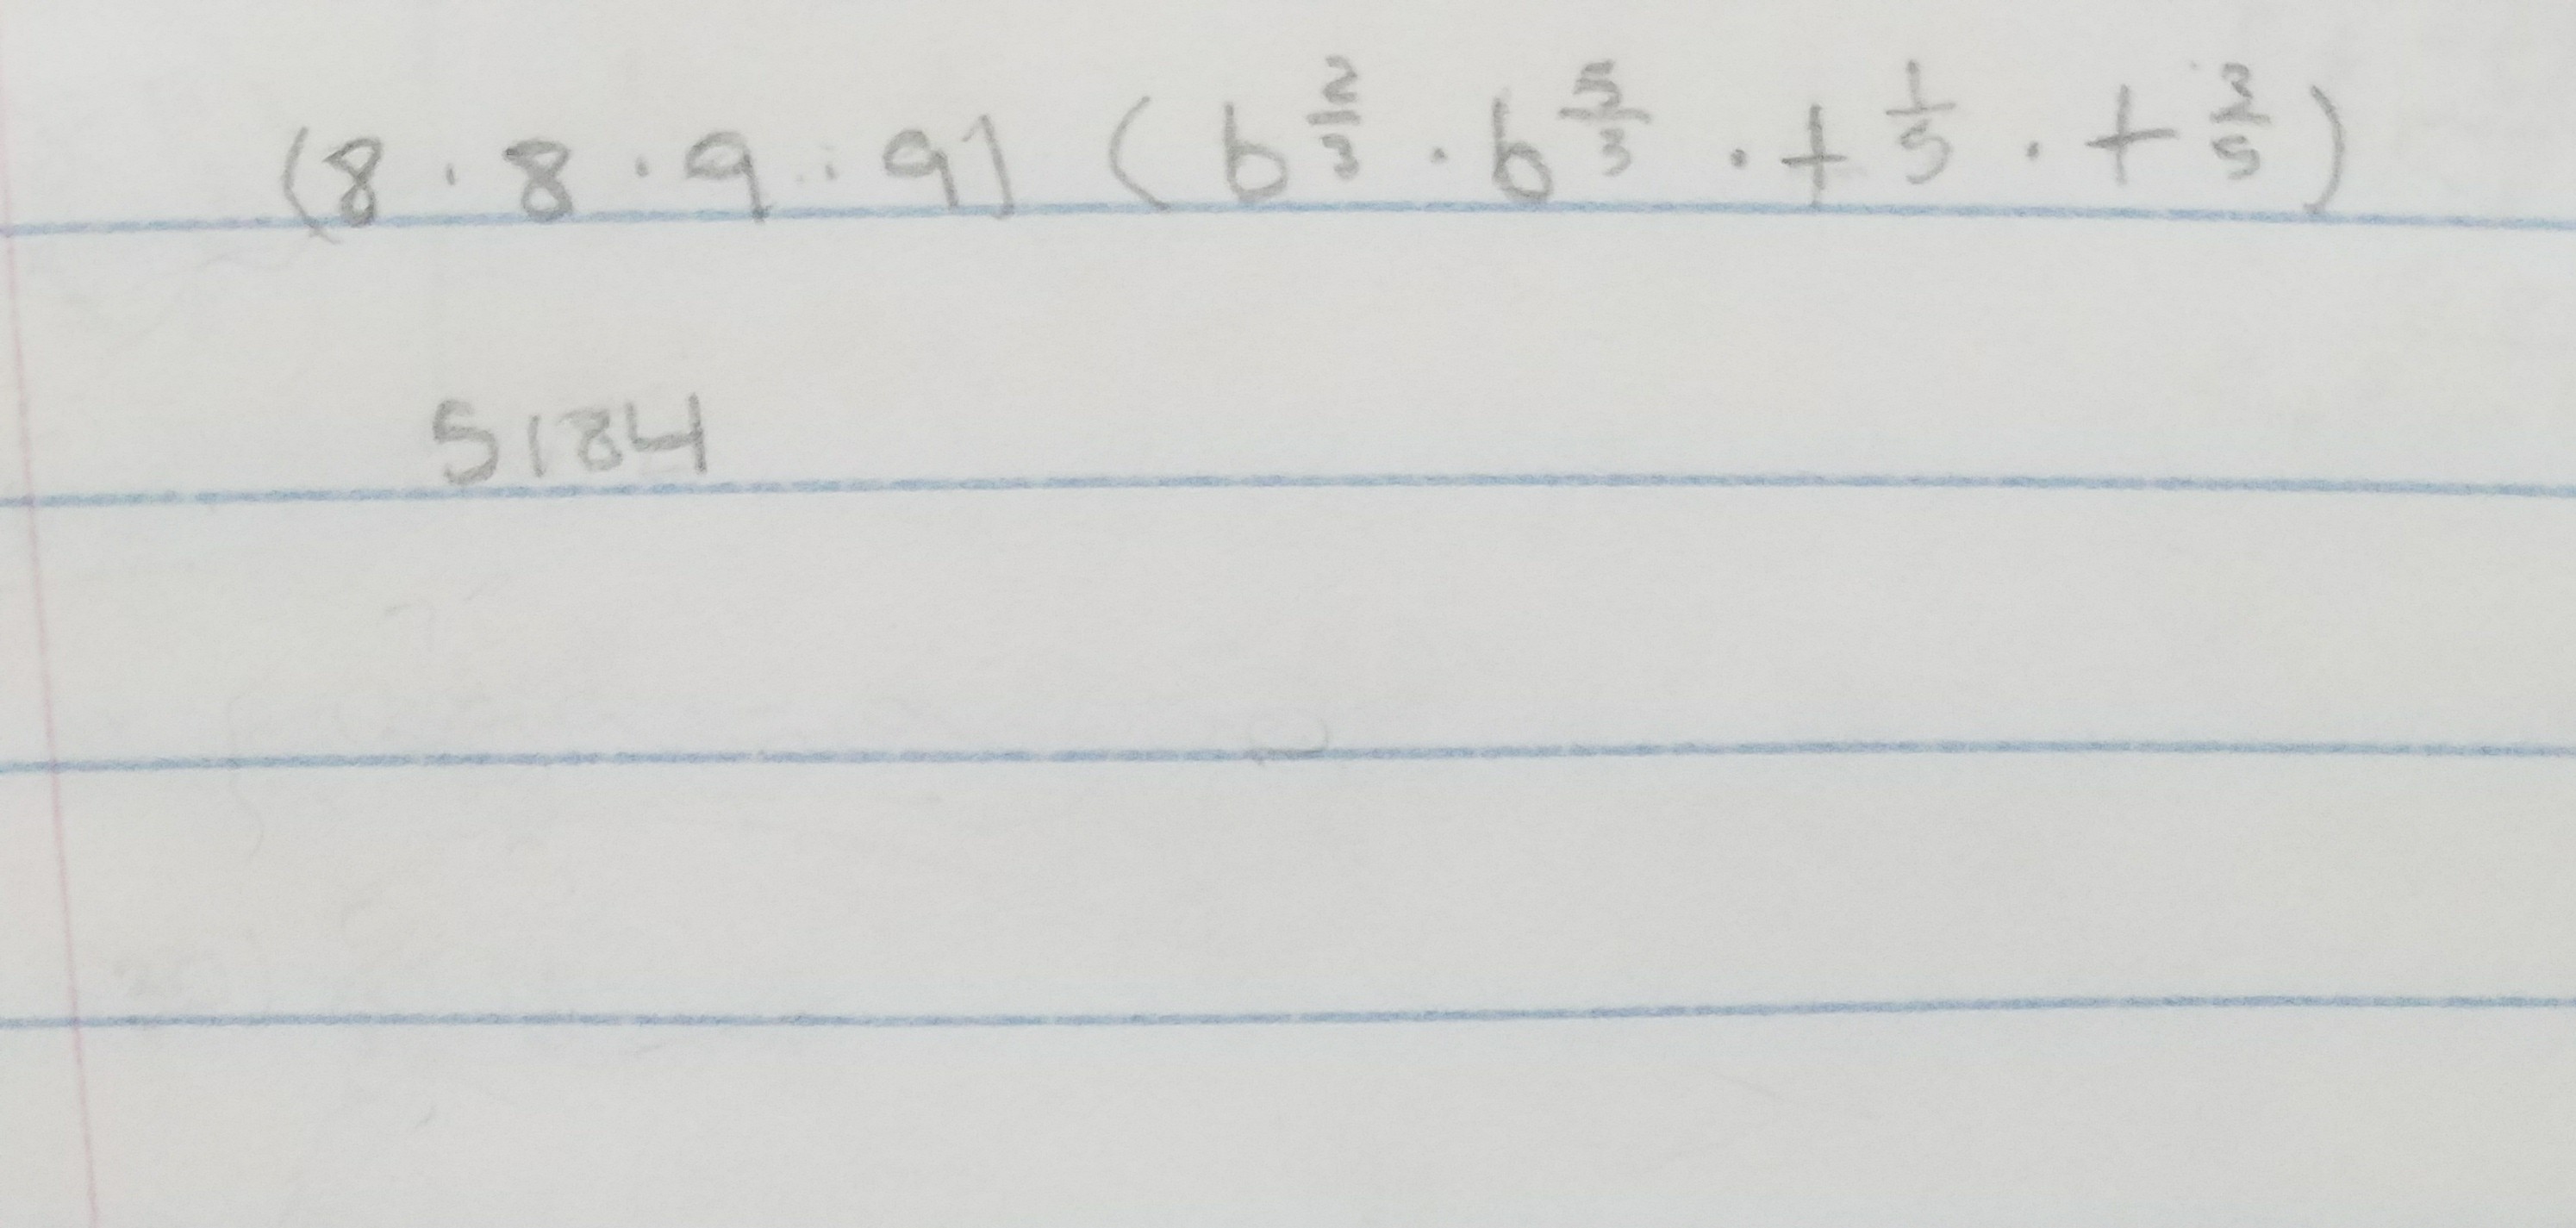 (8 · 8 · 9 · 9) (b^{2/3} · b^{5/3} · t^{1/5} · t^{2/5})
5184